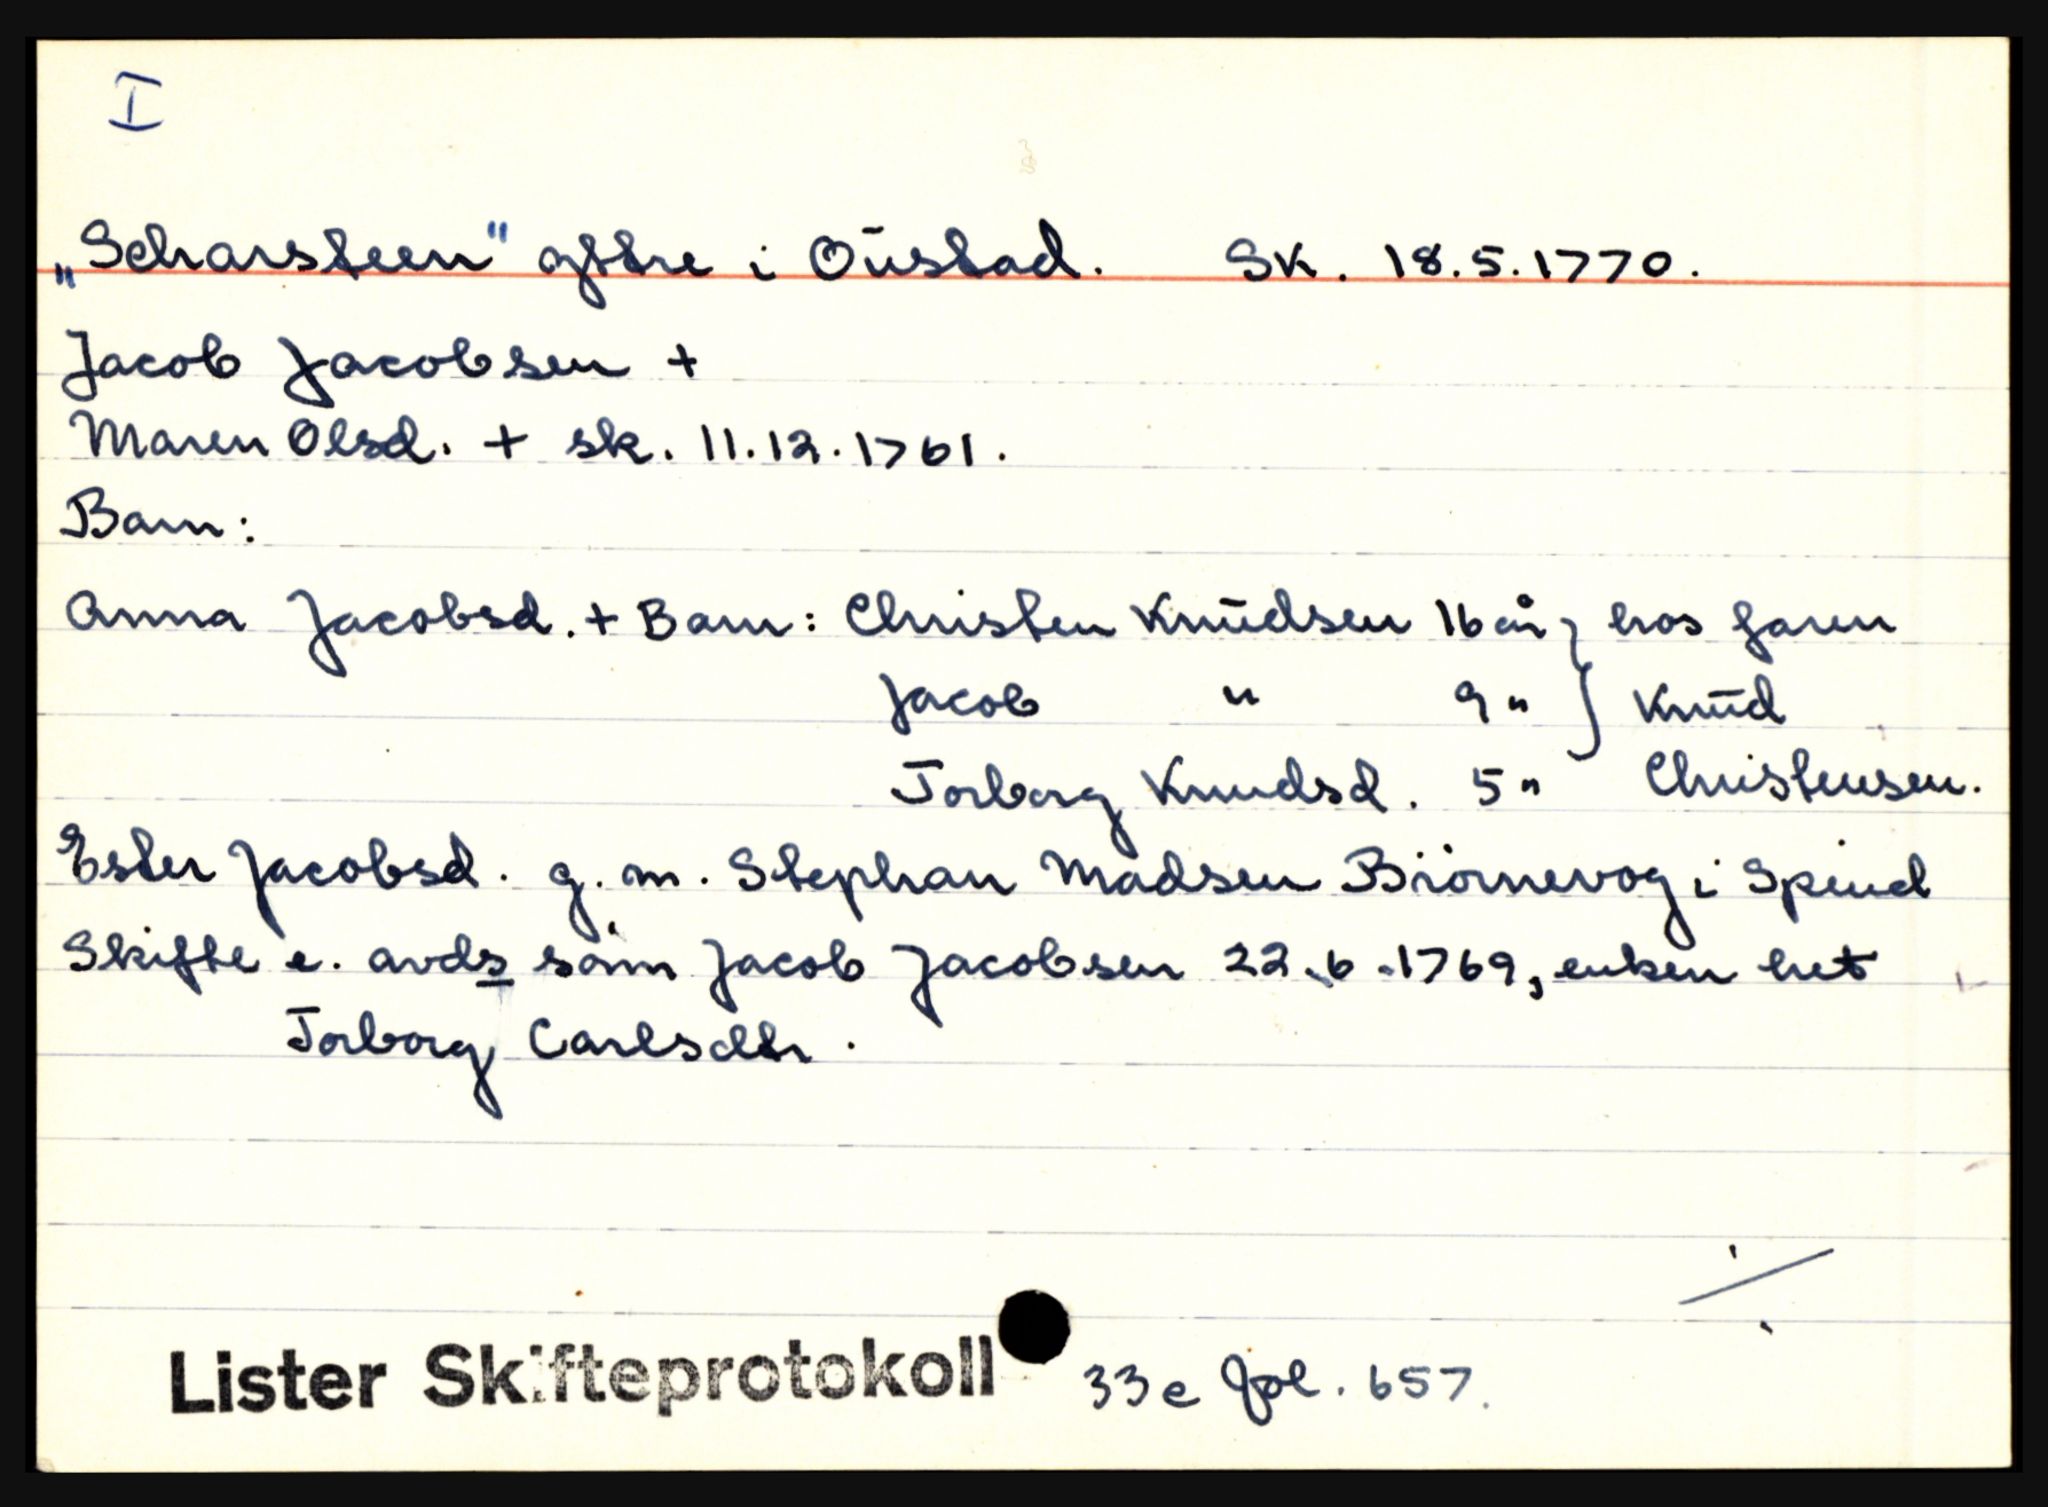 I
„Scharsteen" yttre i Oustad. Sk. 18.5.1770.
Jacob Jacobsen +
Maren Olsd. + sk. 11.12.1761.
Barn:
Anna Jacobsd. + Barn: Christen Knudsen 16 år } hos faren
Jacob " 9 " } Knud
Torborg Knudsd. 5 " Christensen.
Ester Jacobsd. g. m. Stephan Madsen Biörnevog i Spind
Skifte e. avds sönn Jacob Jacobsen 22.6.1769, enken het
Torborg Carlsdtr.
Lister Skifteprotokoll 33e fol. 657.